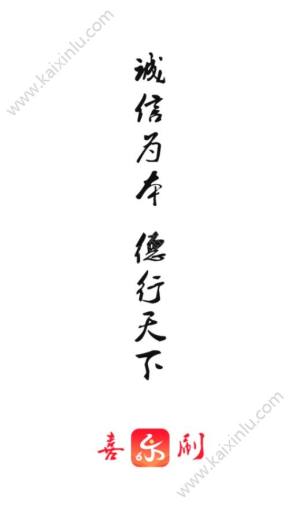 www.kaixinlu.com
诚信为本 德行天下
喜乐刷
www.kaixinlu.com